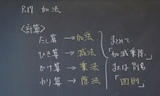 <計算>
たし算 → 加法
ひき算 → 減法
かけ算 → 乗法
わり算 → 除法
まとめて
「加減乗除」
または
「四則」